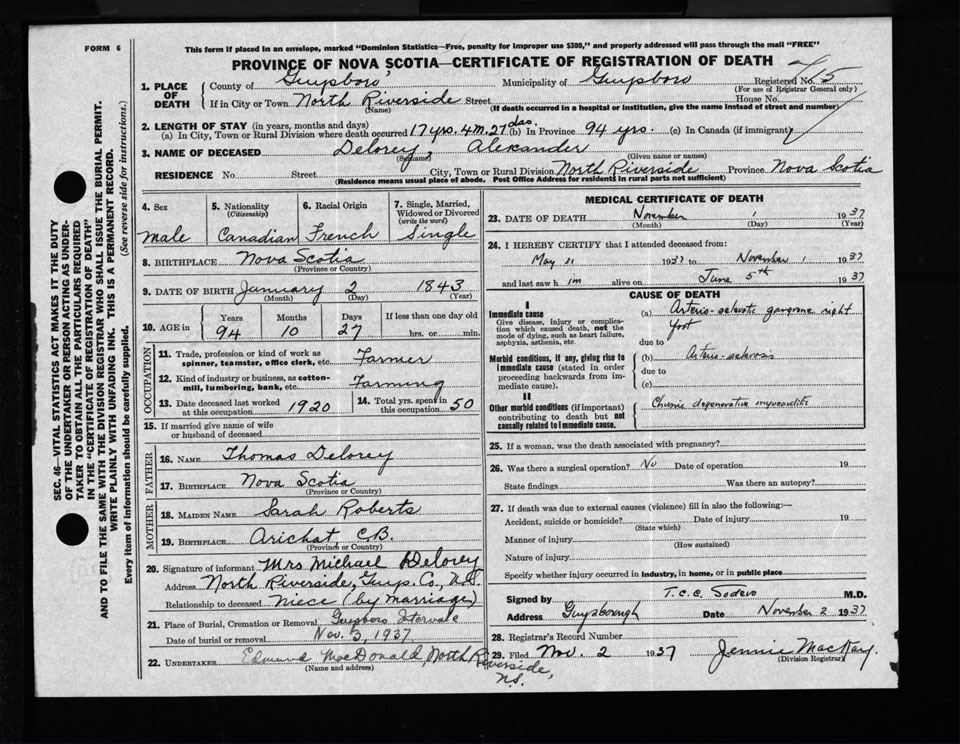 FORM 6
This form if placed in an envelope, marked "Dominion Statistics—Free, penalty for improper use $300," and properly addressed will pass through the mail "FREE"
PROVINCE OF NOVA SCOTIA—CERTIFICATE OF REGISTRATION OF DEATH
SEC. 46—VITAL STATISTICS ACT MAKES IT THE DUTY
OF THE UNDERTAKER OR PERSON ACTING AS UNDER-
TAKER TO OBTAIN ALL THE PARTICULARS REQUIRED
IN THE "CERTIFICATE OF REGISTRATION OF DEATH"
AND TO FILE THE SAME WITH THE DIVISION REGISTRAR WHO SHALL ISSUE THE BURIAL PERMIT.
WRITE PLAINLY WITH UNFADING INK. THIS IS A PERMANENT RECORD.
Every item of information should be carefully supplied. (See reverse side for instructions.)
1. PLACE OF DEATH County of Guysboro' Municipality of Guysboro Registered No. 5
(For use of Registrar General only)
If in City or Town North Riverside Street House No.
(Name) (If death occurred in a hospital or institution, give the name instead of street and number)
2. LENGTH OF STAY (in years, months and days)
(a) In City, Town or Rural Division where death occurred 17 yrs. 4 m. 27 das. (b) In Province 94 yrs. (c) In Canada (if immigrant)
3. NAME OF DECEASED Delorey, Alexander
(Surname) (Given name or names)
RESIDENCE No. Street City, Town or Rural Division North Riverside Province Nova Scotia
(Residence means usual place of abode. Post Office Address for residents in rural parts not sufficient)
4. Sex
male
5. Nationality
(Citizenship)
Canadian
6. Racial Origin
French
7. Single, Married,
Widowed or Divorced
(write the word)
Single
8. BIRTHPLACE Nova Scotia
(Province or Country)
9. DATE OF BIRTH January 2 1843
(Month) (Day) (Year)
10. AGE in
Years Months Days If less than one day old
94 10 27 hrs. or min.
OCCUPATION
11. Trade, profession or kind of work as
spinner, teamster, office clerk, etc. Farmer
12. Kind of industry or business, as cotton-
mill, lumbering, bank, etc. Farming
13. Date deceased last worked
at this occupation 1920
14. Total yrs. spent in
this occupation 50
15. If married give name of wife
or husband of deceased
FATHER
16. NAME Thomas Delorey
17. BIRTHPLACE Nova Scotia
(Province or Country)
MOTHER
18. MAIDEN NAME Sarah Roberts
19. BIRTHPLACE Arichat, C.B.
(Province or Country)
20. Signature of informant Mrs Michael Delorey
Address North Riverside, Guys. Co., N.S.
Relationship to deceased niece (by marriage)
21. Place of Burial, Cremation or Removal Guysboro Intervale
Date of burial or removal Nov. 3, 1937
22. UNDERTAKER Edmund MacDonald, North Riverside,
N.S.
(Name and address)
MEDICAL CERTIFICATE OF DEATH
23. DATE OF DEATH November 1 1937
(Month) (Day) (Year)
24. I HEREBY CERTIFY that I attended deceased from:
May 31 1937 to November 1 1937
and last saw h im alive on June 5th 1937
CAUSE OF DEATH
I
Immediate cause
Give disease, injury or complica-
tion which caused death, not the
mode of dying, such as heart failure,
asphyxia, asthenia, etc.
(a) Arterio-sclerotic gangrene right
foot
due to
Morbid conditions, if any, giving rise to
immediate cause (stated in order
proceeding backwards from im-
mediate cause).
(b) Arterio-sclerosis
due to
(c)
II
Other morbid conditions (if important)
contributing to death but not
causally related to immediate cause.
Chronic degenerative myocarditis
25. If a woman, was the death associated with pregnancy?
26. Was there a surgical operation? No Date of operation 19
State findings Was there an autopsy?
27. If death was due to external causes (violence) fill in also the following:—
Accident, suicide or homicide? Date of injury 19
(State which)
Manner of injury
(How sustained)
Nature of injury
Specify whether injury occurred in industry, in home, or in public place
Signed by T.C.C. Sodero M.D.
Address Guysborough Date November 2 1937
28. Registrar's Record Number
29. Filed Nov. 2 1937 Jennie MacKay.
(Division Registrar)